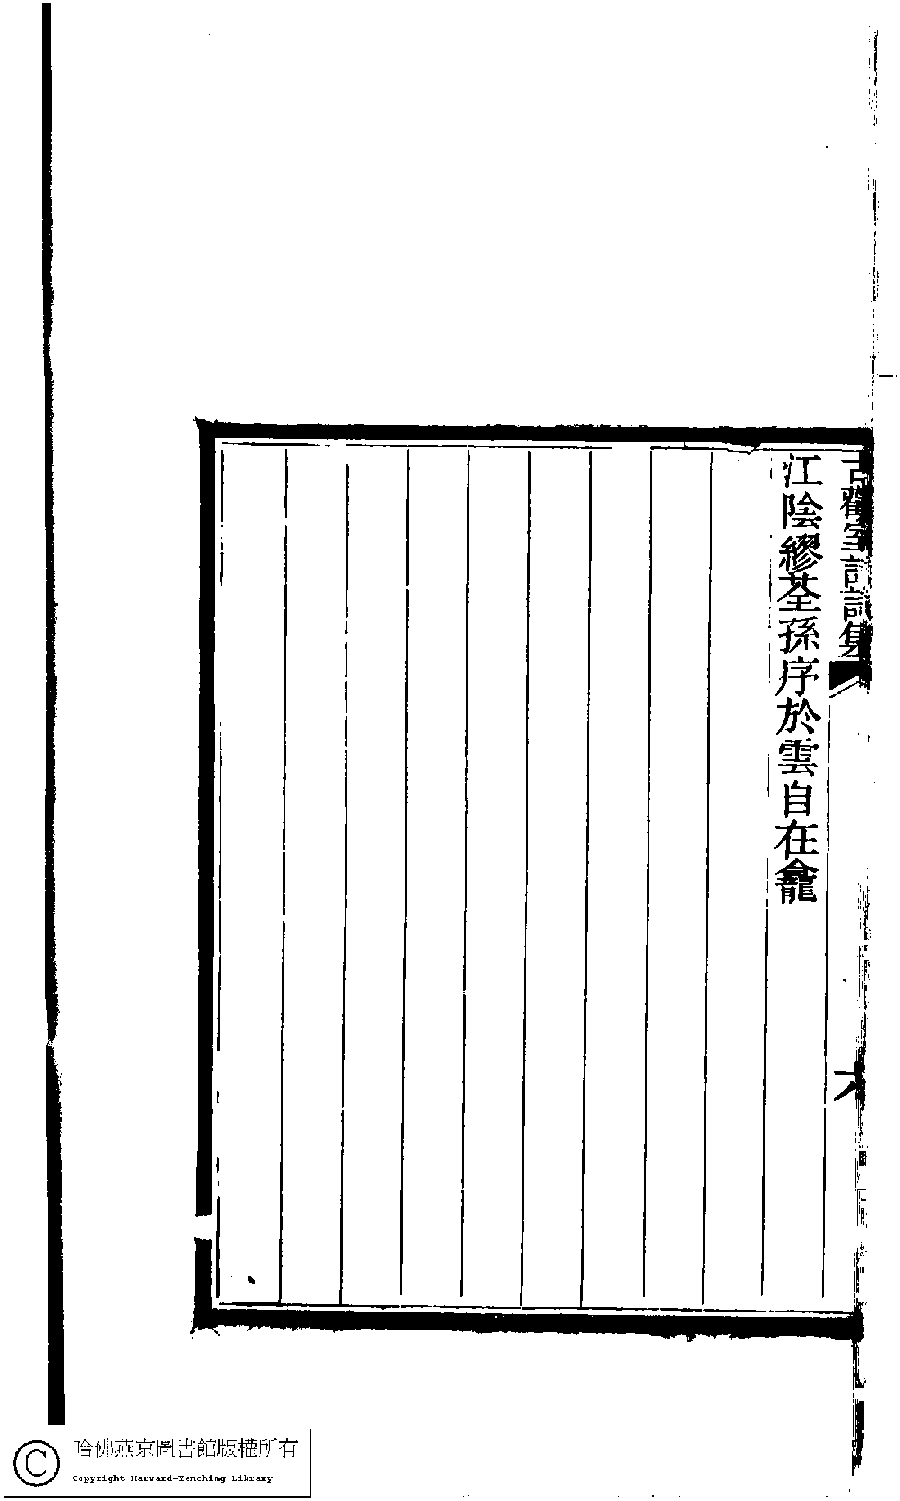 江陰繆荃孫序於雲自在龕
古歡室詩詞集
哈佛燕京圖書館版權所有
Copyright Harvard-Yenching Library